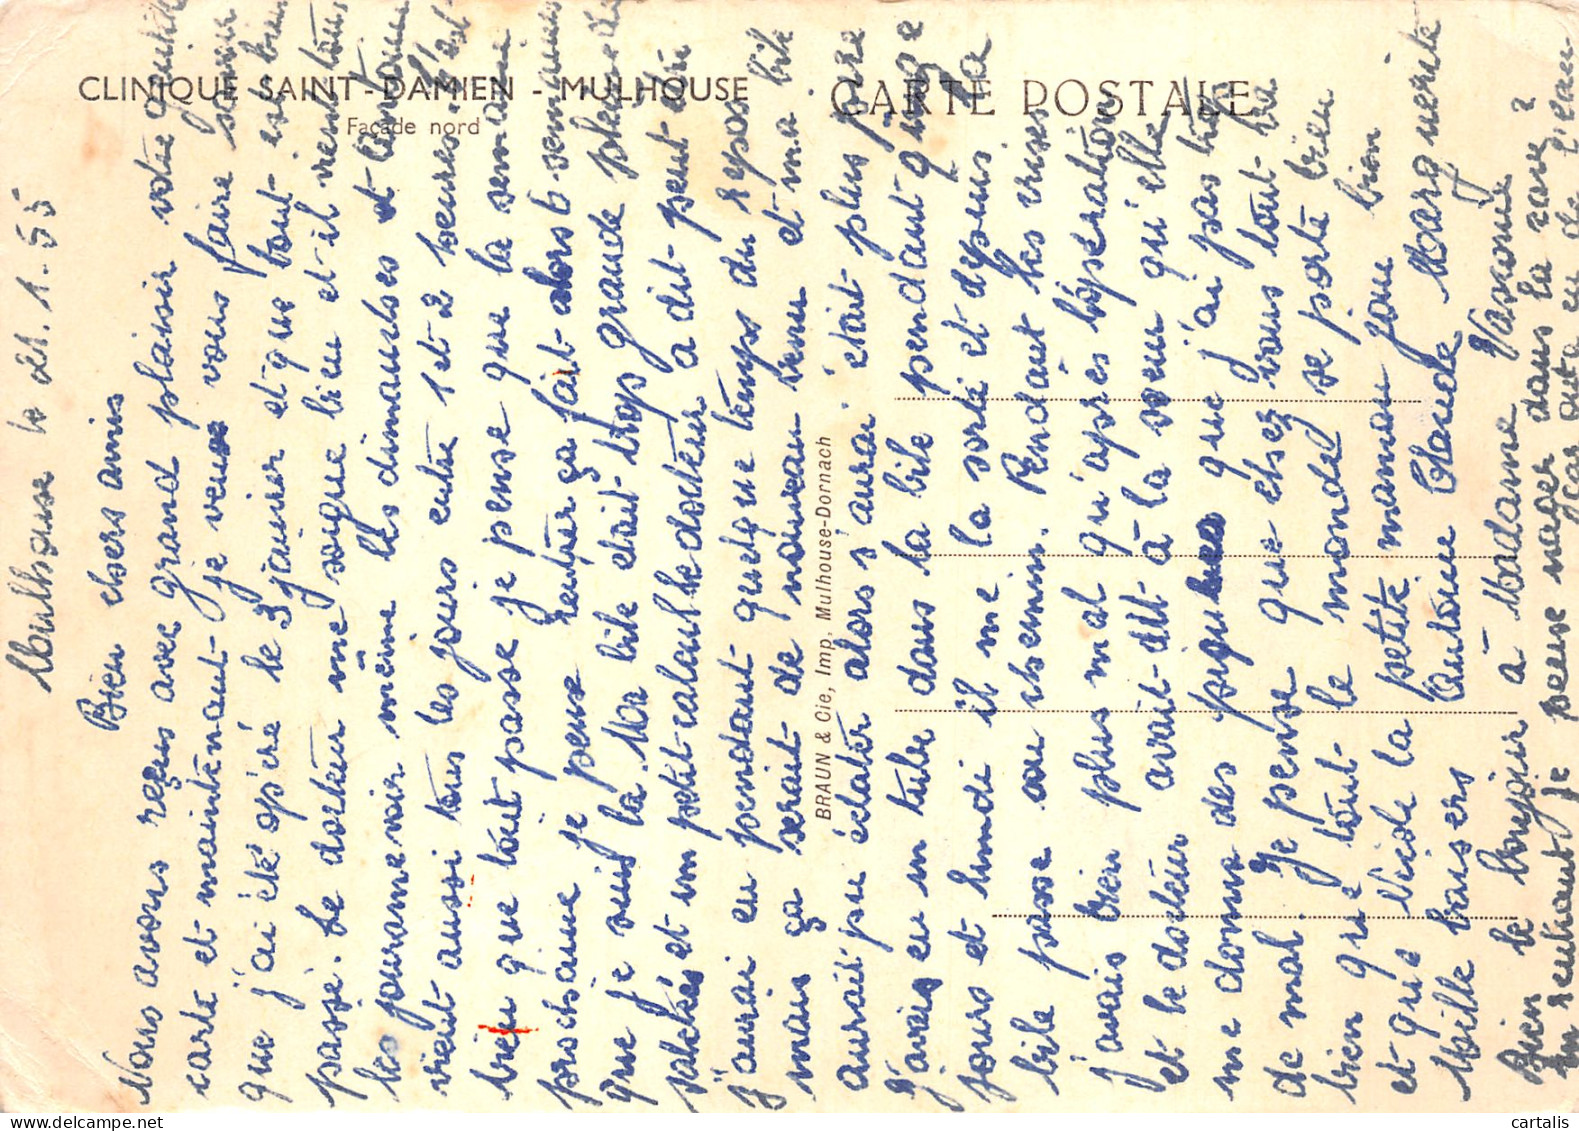 CLINIQUE SAINT-DAMIEN - MULHOUSE
Façade nord
CARTE POSTALE
BRAUN & Cie, Imp, Mulhouse-Dornach
Mulhouse le 21.1.55
Bien chers amis
Nous avons reçus avec grand plaisir votre gentille
carte et maintenant je veux vous faire savoir
que j'ai été opéré le 3 janvier et que tout est bien
passé. Le docteur me soigne bien et il vient tous
les jours me voir même les dimanches et
vient aussi tous les jours entre 1 et 2 heures.
bien que tout passe je pense que la semaine
prochaine je pense rentrer ça fait alors 6 semaines
que je suis là. Ma bile était trop grande pleine de
et un petit calcul le docteur a dit peut être
j'aurai eu pendant quelque temps du repos
mais ça serait de nouveau venu et ma bile
aurait pu éclater alors s'aurai était plus
j'avais eu un tube dans la bile pendant
jours et lundi il me la sorté et depuis la
bile passe au chemin. Pendant les
j'avais bien plus mal qu'après l'opération
et le docteur avait dit à la sœur qu'elle
me donne des piqures que j'ai pas
de mal. Je pense que chez vous tout
bien que tout le monde se porte bien
et que Nicole la petite maman joue bien
Mille baisers Antoine Claude Marguerite
Bien le bonjour à Madame
en rentrant je pense nager dans la cave?
car on a eu de l'eau